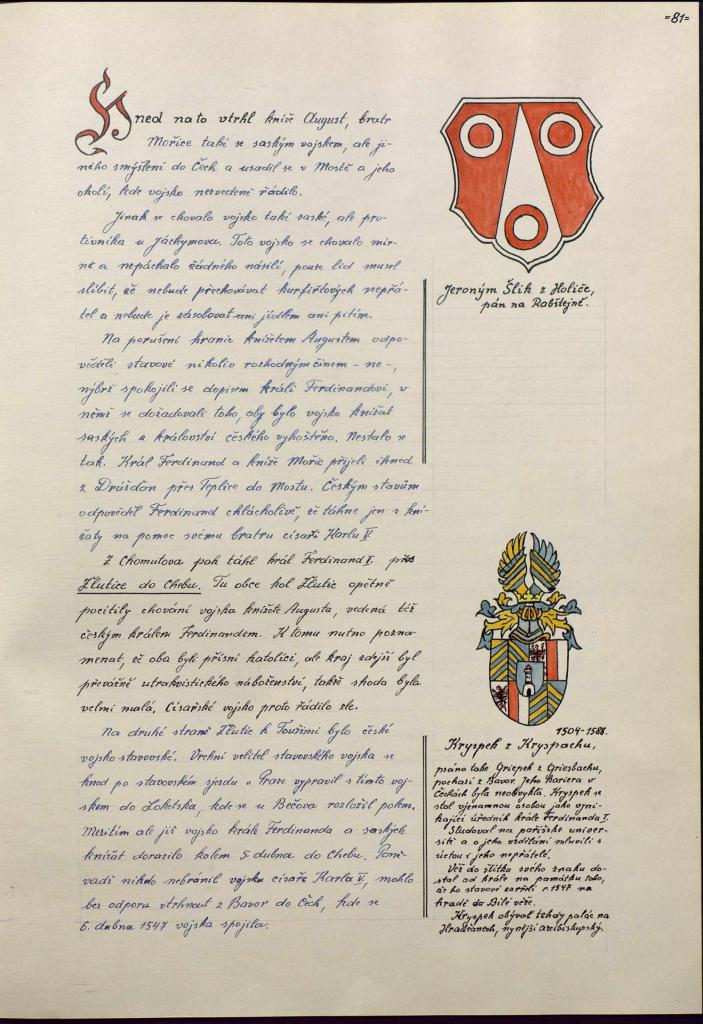 =81=
Hned na to vtrhl kníže August, bratr
Mořice také se saským vojskem, ale ji-
ného smýšlení do Čech a usadil se v Mostě a jeho
okolí, kde vojsko nezvedeně řádilo.
Jinak se chovalo vojsko také saské, ale pro-
tivníka u Jáchymova. Toto vojsko se chovalo mír-
ně a nepáchalo žádného násilí, pouze lid musel
slíbit, že nebude přechovávat kurfiřtových nepřá-
tel a nebude je zásobovat ani jídlem ani pitím.
Na porušení hranic knížetem Augustem odpo-
věděli stavové nikoliv rozhodným činem - ne-,
nýbrž spokojili se dopisem králi Ferdinandovi, v
němž se dožadovali toho, aby bylo vojsko knížat
saských z království českého vyhoštěno. Nestalo se
tak. Král Ferdinand a kníže Mořic přijeli ihned
z Drážďan přes Teplice do Mostu. Českým stavům
odpověděl Ferdinand chlácholivě, že táhne jen s kní-
žaty na pomoc svému bratru císaři Karlu V.
Z Chomutova pak táhl král Ferdinand I. přes
Žlutice do Chebu. Tu obce kol Žlutic opětně
pocítily chování vojska knížete Augusta, vedená též
českým králem Ferdinandem. K tomu nutno pozna-
menat, že oba byli přísní katolíci, ale kraj zdejší byl
převážně utrakvistického náboženství, takže shoda byla
velmi malá. Císařské vojsko proto řádilo zle.
Na druhé straně Žlutic k Toužimi bylo české
vojsko stavovské. Vrchní velitel stavovského vojska se
hned po stavovském sjezdu v Praze vypravil s tímto voj-
skem do Loketska, kde se u Bečova rozložil polem.
Mezitím ale již vojsko krále Ferdinanda a saských
knížat dorazilo kolem 5. dubna do Chebu. Poně-
vadž nikdo nebránil vojsku císaře Karla V., mohlo
bez odporu vtrhnout z Bavor do Čech, kde se
6. dubna 1547 vojska spojila.
Jeroným Šlik z Holíče,
pán na Rabštejně.
1504-1588.
Kryspek z Kryspachu,
psáno také Griepek z Griesbachu,
pochází z Bavor. Jeho kariera v
Čechách byla neobvyklá. Kryspek se
stal významnou osobou jako vyni-
kající úředník krále Ferdinanda I.
Studoval na pařížské univer-
sitě a o jeho vzdělání mluvili s
úctou i jeho nepřátelé.
Věž do štítku svého znaku do-
stal od krále na památku toho,
že ho stavové zavřeli r. 1547 na
hradě do Bílé věže.
Kryspek obýval tehdy palác na
Hradčanech, nynější arcibiskupský.